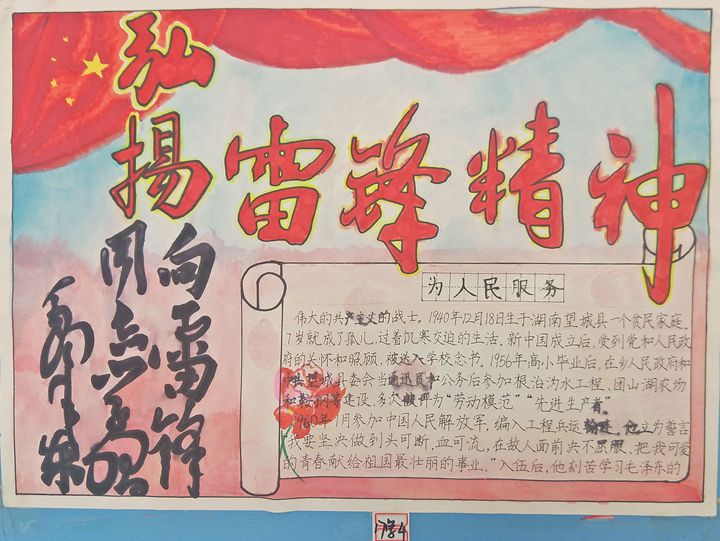 弘
揚
雷锋精神
向雷锋
同志学習
毛泽东
为人民服务
伟大的共产主义的战士。1940年12月18日生于湖南望城县一个贫民家庭.
7岁就成了孤儿,过着饥寒交迫的生活.新中国成立后,受到党和人民政
府的关怀和照顾,被送入学校念书.1956年高小毕业后,在乡人民政府和
中共望城县委会当通讯员和公务后参加根治沩水工程、团山湖农场
和鞍钢等建设,多次被评为“劳动模范”“先进生产者”
1960年1月参加中国人民解放军,编入工程兵运输连.他立为誓言
“我要坚决做到头可断,血可流,在故人面前决不屈服.把我可爱
的青春献给祖国最壮丽的事业.”入伍后,他刻苦学习毛泽东的